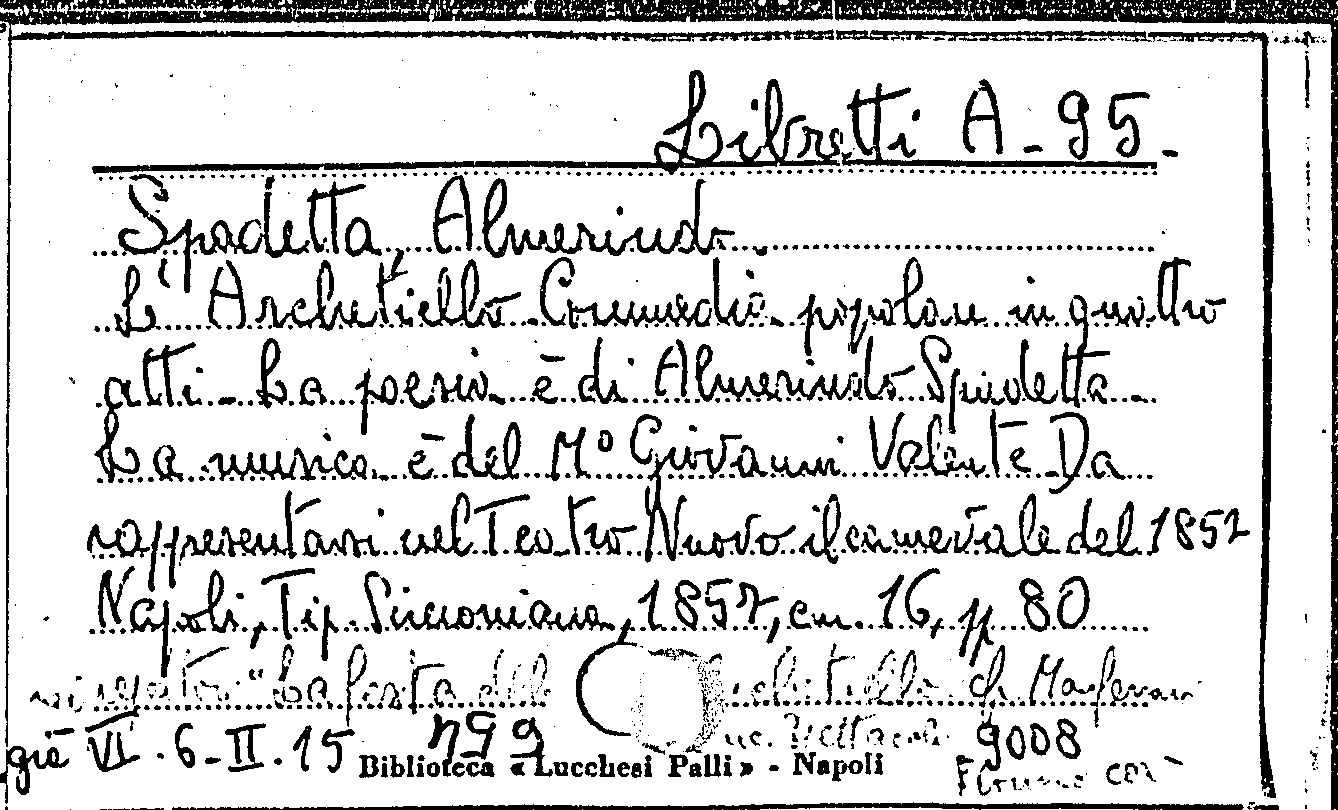 Libretti A - 95 -
Spadetta, Almerindo.
L' Archetiello - Commedia popolare in quattro
atti - La poesia è di Almerindo Spadetta -
La musica è del Mº Giovanni Valente - Da
rappresentarsi nel Teatro Nuovo il carnevale del 1852
Napoli, Tip. Sirconiana, 1852, cm. 16, pp 80
"La festa dell'
già VI . 6 - II . 15 9008
Biblioteca « Lucchesi Palli » - Napoli